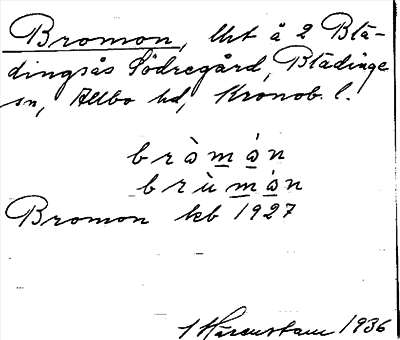 Bromon, lht å 2 Blä-
dingsås Södregård, Blädinge
sn, Allbo hd, Kronob. l.
bròmán
brùmán
Bromon kb 1927
Härenstam 1936